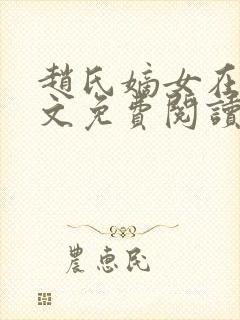 趙氏嫡女在
文免費閱讀
農惠民